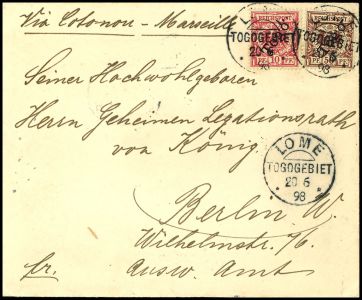 Via Cotonou - Marseille
REICHSPOST REICHSPOST
LOME
TOGOGEBIET TOGOGEBIET
20 6
98 98
10 PF 10 50 PF 50
Seiner Hochwohlgeboren
Herrn Geheimen Legationsrath
von König.
LOME
TOGOGEBIET
20 6
98
Berlin W.
Wilhelmstr. 76.
fr. Ausw. Amt